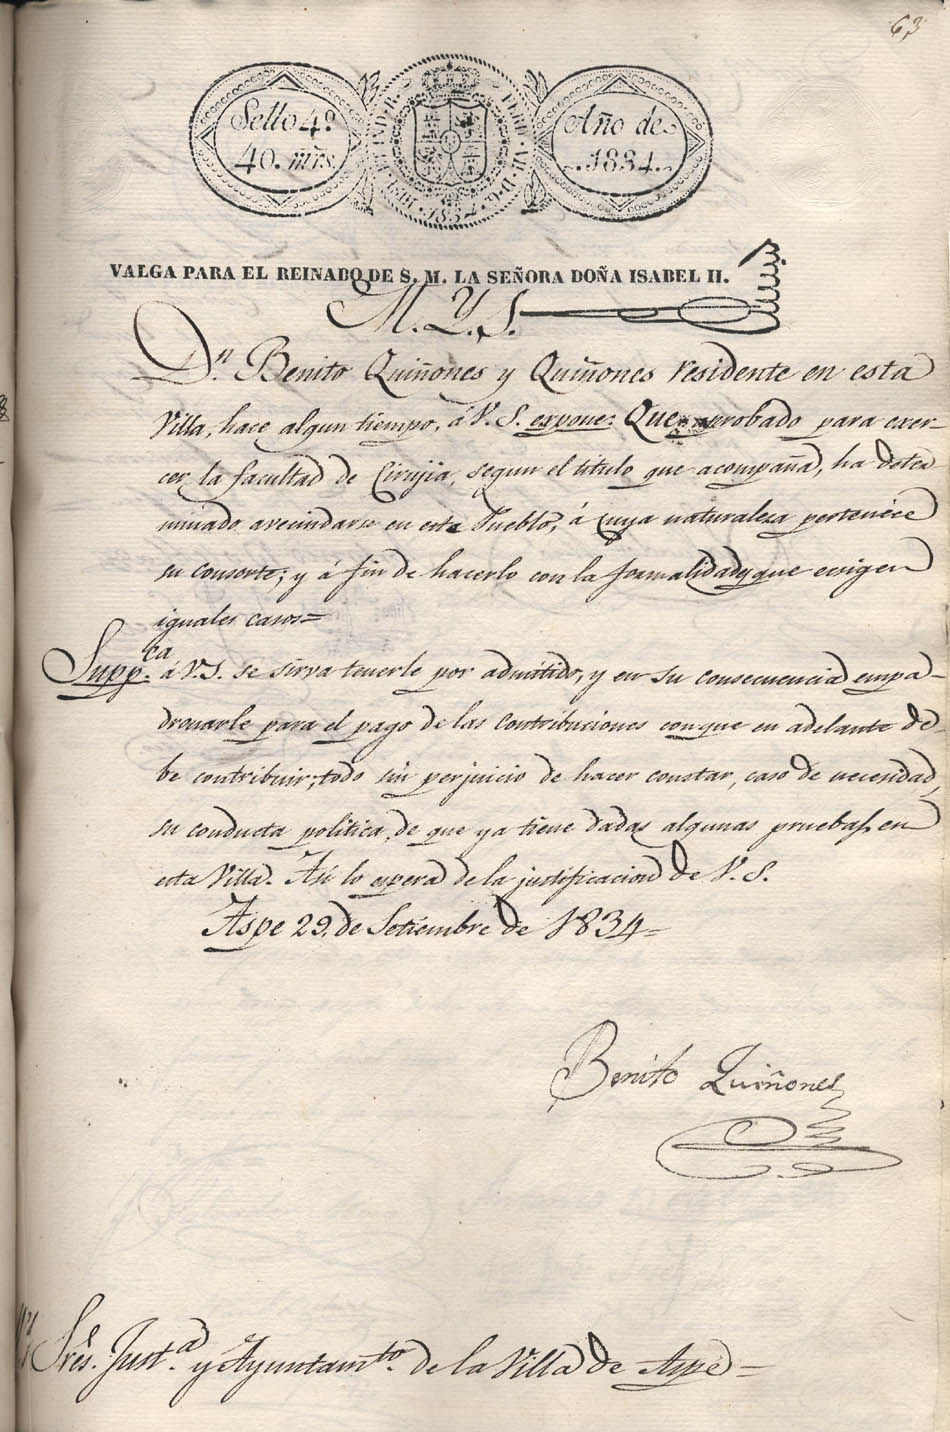 63
Sello 4º
40. mrs.
Año de
1834.
VALGA PARA EL REINADO DE S. M. LA SEÑORA DOÑA ISABEL II.
M. Y. S.
Dn. Benito Quiñones y Quiñones residente en esta
Villa, hace algun tiempo, á V. S. expone: Que aprobado para exer-
cer la facultad de Cirujia, segun el titulo que acompaña, ha deter
minado avecindarse en este Pueblo, á cuya naturaleza pertenece
su consorte; y á fin de hacerlo con la formalidad que exigen
iguales casos=
Suppca. á V. S. se sirva tenerle por admitido, y en su consecuencia empa-
dronarle para el pago de las contribuciones conque en adelante de-
be contribuir; todo sin perjuicio de hacer constar, caso de necesidad,
su conducta politica, de que ya tiene dadas algunas pruebas en
esta Villa. Asi lo espera de la justificacion de V. S.
Aspe 29. de Setiembre de 1834=
Benito Quiñones
Sres. Justa. y Ayuntamto. de la Villa de Aspe=